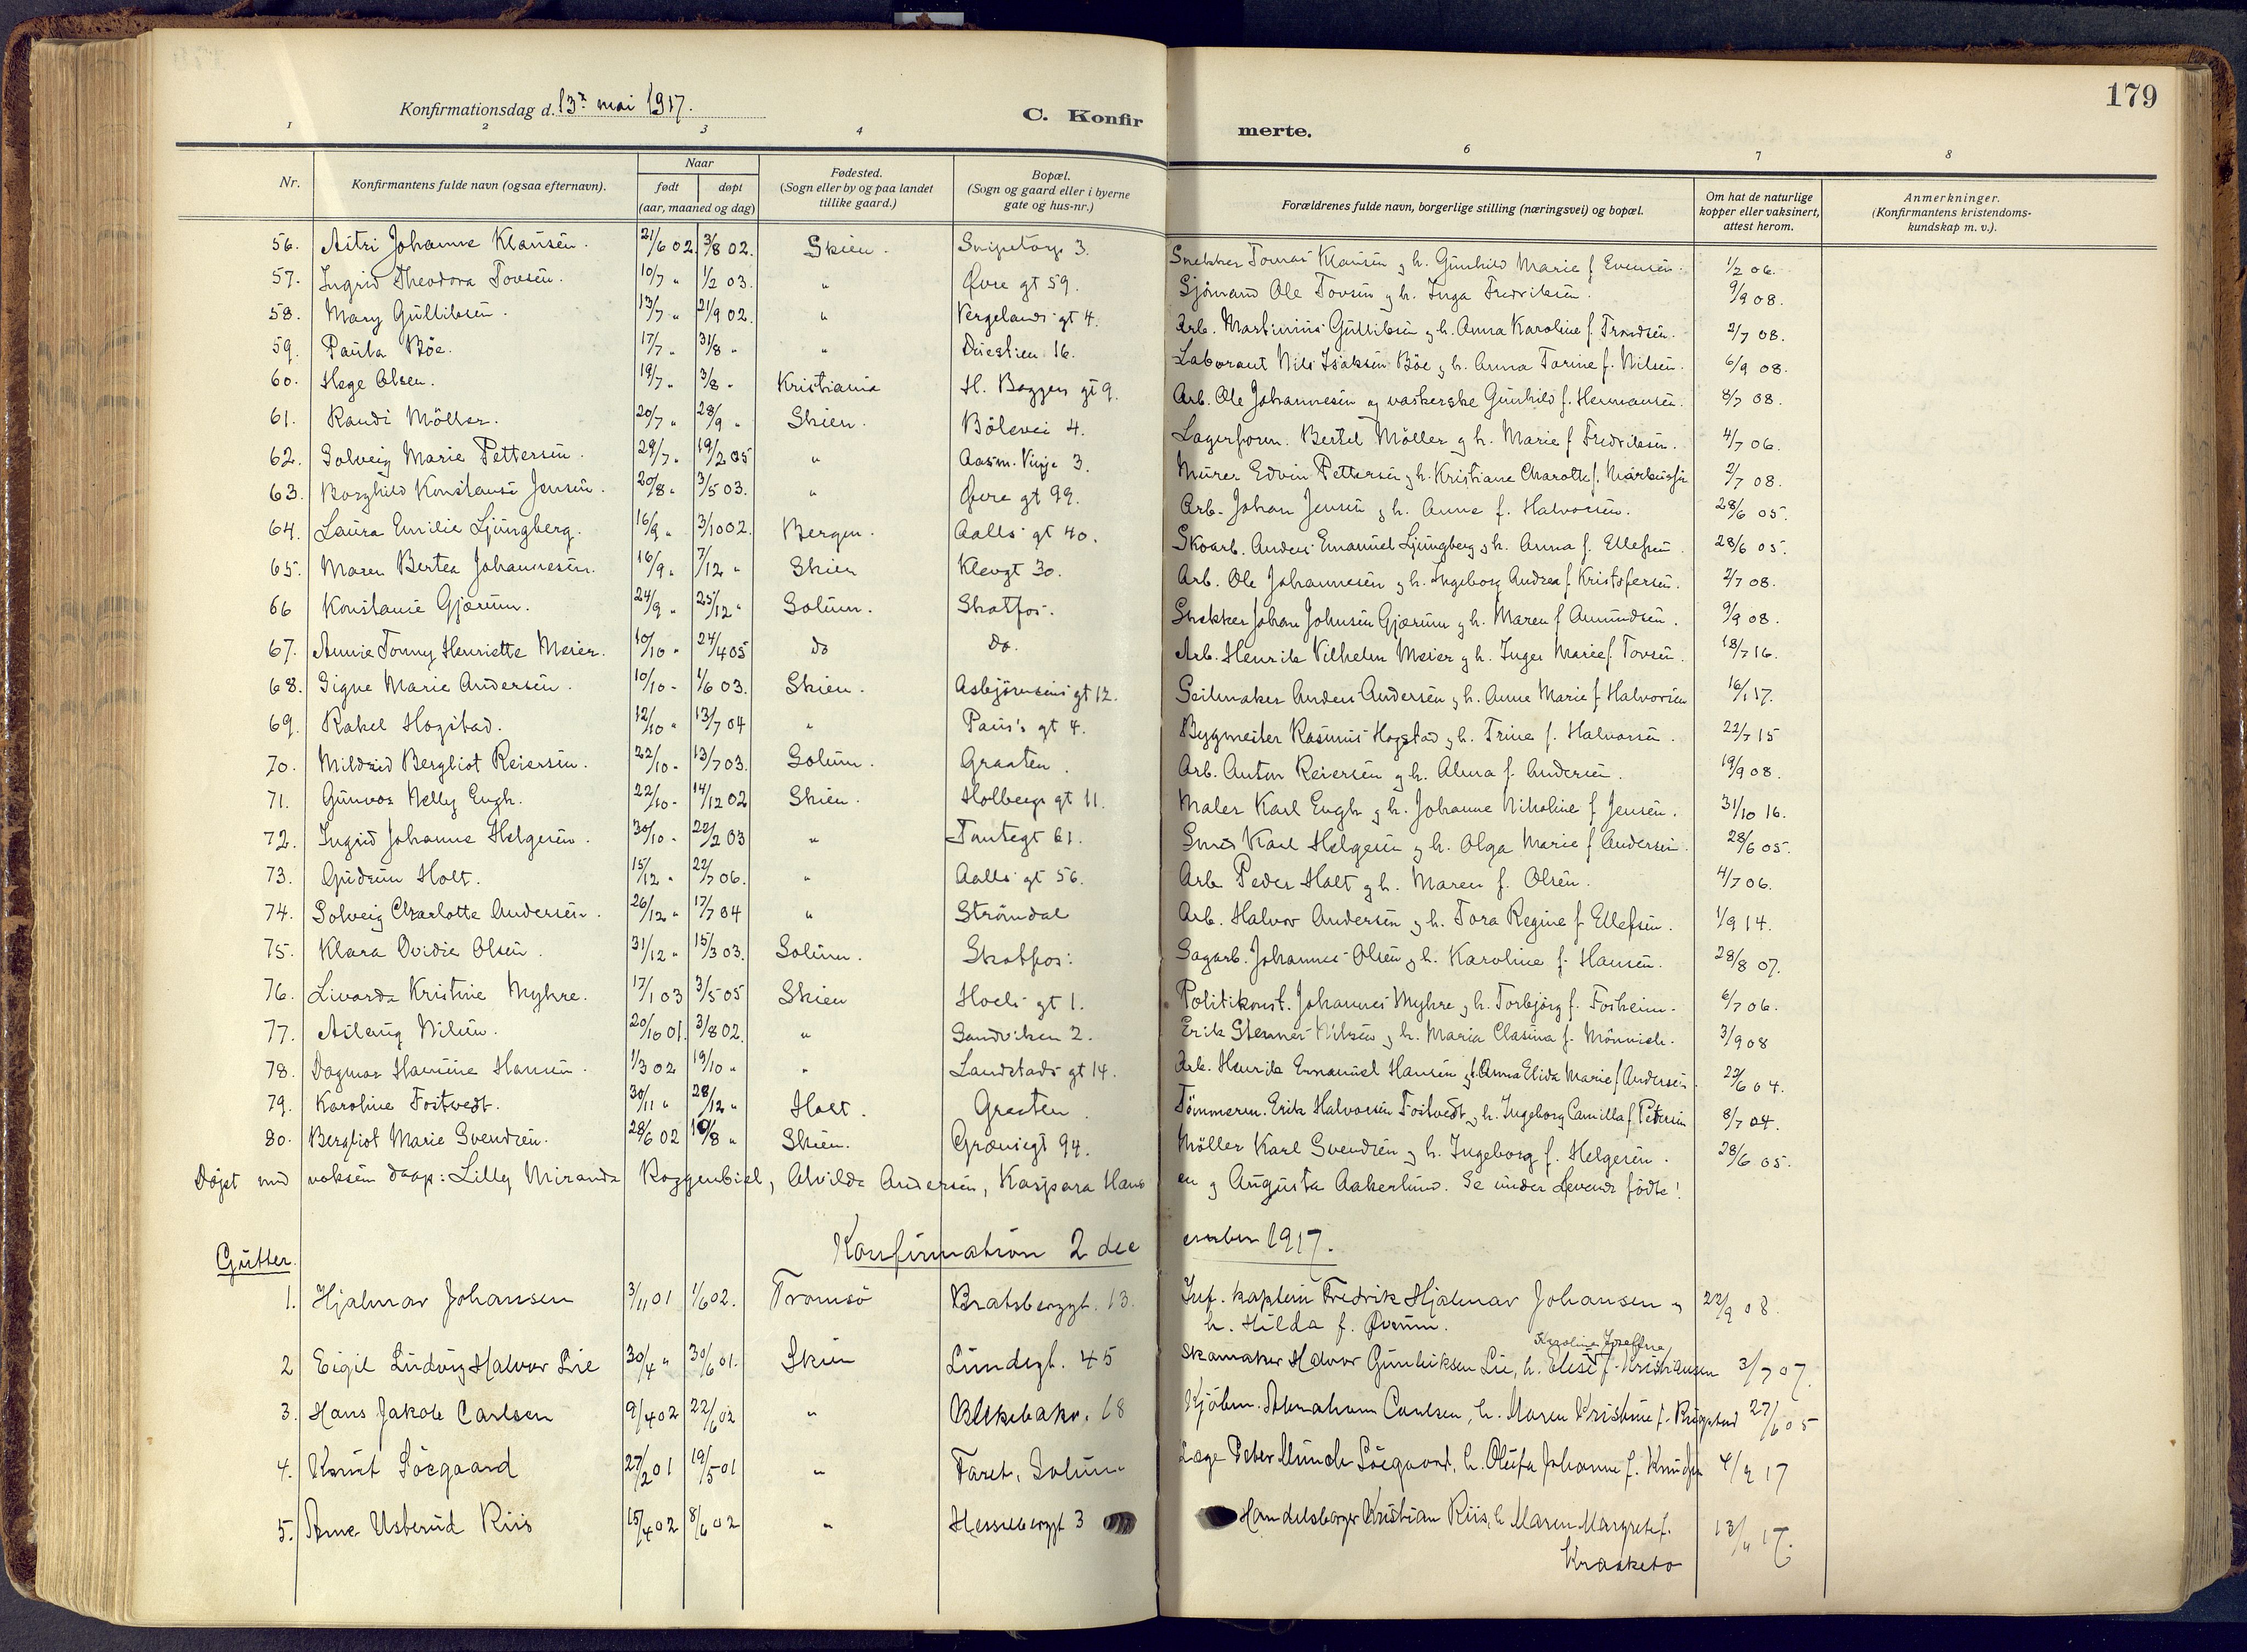 179
Konfirmationsdag d. 13? mai 1917.
C. Konfir merte.
1 2 3 4 6 7 8
Nr. Konfirmantens fulde navn (ogsaa efternavn). Naar født døpt (aar, maaned og dag) Fødested. (Sogn eller by og paa landet tillike gaard.) Bopæl. (Sogn og gaard eller i byerne gate og hus-nr.) Forældrenes fulde navn, borgerlige stilling (næringsvei) og bopæl. Om hat de naturlige kopper eller vaksinert, attest herom. Anmerkninger. (Konfirmantens kristendoms-kundskap m. v.).
56. Astri Johanne Klausen. 21/6 02. 3/8 02. Skien. Snipetorp 3. Snekker Tomas Klausen og h. Gunhild Marie f. Evensen. 1/2 06.
57. Ingrid Theodora Tovsen. 10/7 " 1/2 03. " Øvre gt 59. Sjömand Ole Tovsen og h. Inga Fredriksen. 9/9 08.
58. Mary Gulliksen. 13/7 " 21/9 02. " Vergelands gt 4. Arb. Martinius Gulliksen og h. Anna Karoline f. Trondsen. 2/7 08.
59. Paula Böe. 17/7 " 31/8 " " Duestien 16. Laborant Nils Isaksen Böe og h. Anna Tarine f. Nilsen. 6/9 08.
60. Hege Olsen. 19/7 " 3/8 " Kristiania H. Baggers gt 9. Arb. Ole Johannesen og vaskerske Gunhild f. Hermansen. 8/7 08.
61. Randi Möller. 20/7 " 28/9 " Skien. Bölevei 4. Lagerform. Bertel Möller og h. Marie f. Fredriksen. 4/7 06.
62. Solveig Marie Pettersen. 29/7 " 19/2 05 " Aasm. Vinje 3. Murer Edvin Pettersen og h. Kristiane Charlotte f. 2/7 08.
63. Borghild Konstanse Jensen. 20/8 " 3/5 03. " Øvre gt 99. Arb. Johan Jensen og h. Anne f. Halvorsen. 28/6 05.
64. Laura Emilie Ljungberg. 16/9 " 3/10 02. Bergen. Aalls gt 40. Skoarb. Anders Emanuel Ljungberg og h. Anna f. Ellefsen. 28/6 05.
65. Maren Bertea Johannesen. 16/9 " 7/12 " Skien Klevgt 30. Arb. Ole Johannesen og h. Ingeborg Andrea f. Kristofersen. 2/7 08.
66 Konstanse Gjærum. 24/9 " 25/12 " Solum. Skotfos. Snekker Johan Johnsen Gjærum og h. Maren f. Amundsen. 9/9 08.
67. Annie Tonny Henriette Meier. 10/10 " 24/4 05 do do. Arb. Henrik Vilhelm Meier og h. Inger Marie f. Tovsen. 18/7 16.
68. Signe Marie Andersen. 10/10 - 1/6 03. Skien. Asbjörnsens gt 12. Seilmaker Anders Andersen og h. Anne Marie f. Halvorsen 16/1 17.
69. Rakel Hogstad. 12/10 " 13/7 04 " Paus's gt 4. Bygmester Rasmus Hogstad og h. Trine f. Halvorsen. 22/7 15
70. Mildrid Bergliot Reiersen. 22/10 - 13/7 03. Solum. Graaten. Arb. Anton Reiersen og h. Alma f. Andersen. 19/9 08.
71. Gunvor Nelly Engh. 22/10 - 14/12 02 Skien. Holbergs gt 11. Maler Karl Engh og h. Johanne Nikoline f. Jensen. 31/10 16.
72. Ingrid Johanne Helgesen. 30/10 - 22/2 03 " Tontegt 61. Smed Karl Helgesen og h. Olga Marie f. Andersen. 28/6 05.
73. Gudrun Holt. 15/12 " 22/7 06. " Aalls gt 56. Arb. Peder Holt og h. Maren f. Olsen. 4/7 06.
74. Solveig Charlotte Andersen. 26/12 " 17/7 04 " Strömdal Arb. Halvor Andersen og h. Tora Regine f. Ellefsen. 1/9 14.
75. Klara Ovidie Olsen. 31/12 " 15/3 03. Solum. Skotfos. Sagarb. Johannes Olsen og h. Karoline f. Hansen. 28/8 07.
76. Livarda Kristine Myhre. 17/1 03 3/5 05 Skien Hoels gt 1. Politikonst. Johannes Myhre og h. Torbjörg f. Fosheim. 6/7 06.
77. Aslaug Nilsen. 20/10 01. 3/8 02. " Sandviken 2. Erik Stenner Nilsen og h. Maria Clasina f. Mönnich. 3/9 08
78. Dagmar Hansine Hansen. 1/3 02 19/10 " " Landstads gt 14. Arb. Henrik Emanuel Hansen og h. Anna Elida Marie f. Andersen. 22/6 04.
79. Karoline Fostvedt. 30/11 " 28/12 " Holt. Graaten. Tömmerm. Erik Halvorsen Fostvedt og h. Ingeborg Camilla f. Petersen 8/7 04.
80. Bergliot Marie Svendsen. 28/6 02 10/8 " Skien. Grønliegt 94. Möller Karl Svendsen og h. Ingeborg f. Helgesen. 28/6 05.
Döpt ved voksen daap: Lilly Miranda Roggenbiel, Alvilda Andersen, Kaspara Hansen og Augusta Aakerlund. Se under Levende fødte!
Konfirmation 2 december 1917.
Gutter.
1. Hjalmar Johansen 3/11 01 1/6 02. Tromsö Bratsbergt. 13. Inf. kaptein Fredrik Hjalmar Johansen og 22/9 08.
h. Hilda f. Øvrum.
Karoline Josefine
2 Eigil Ludvig Halvor Lie 30/4 " 30/6 01. Skien Lundegt. 45 Skomaker Halvor Gunleiksen Lie, h. Elise f. Kristiansen 3/7 07.
3. Hans Jakob Carlsen 9/4 02 22/6 02 " Blekebakv. 68 Kjöbm. Abraham Carlsen, h. Maren Kristine f. 27/6 05
4. Knut Löegaard 27/2 01 19/5 01 " Faret, Solum Læge Peter Munch Löegaard, h. Olufa Johanne f. Knudsen 4/9 17
5. Arne Usterud Riis 15/4 02 8/6 02 " Hesselbergt 3 Handelsborger Kristian Riis, h. Maren Margrete f. 13/11 17.
Kraaketo